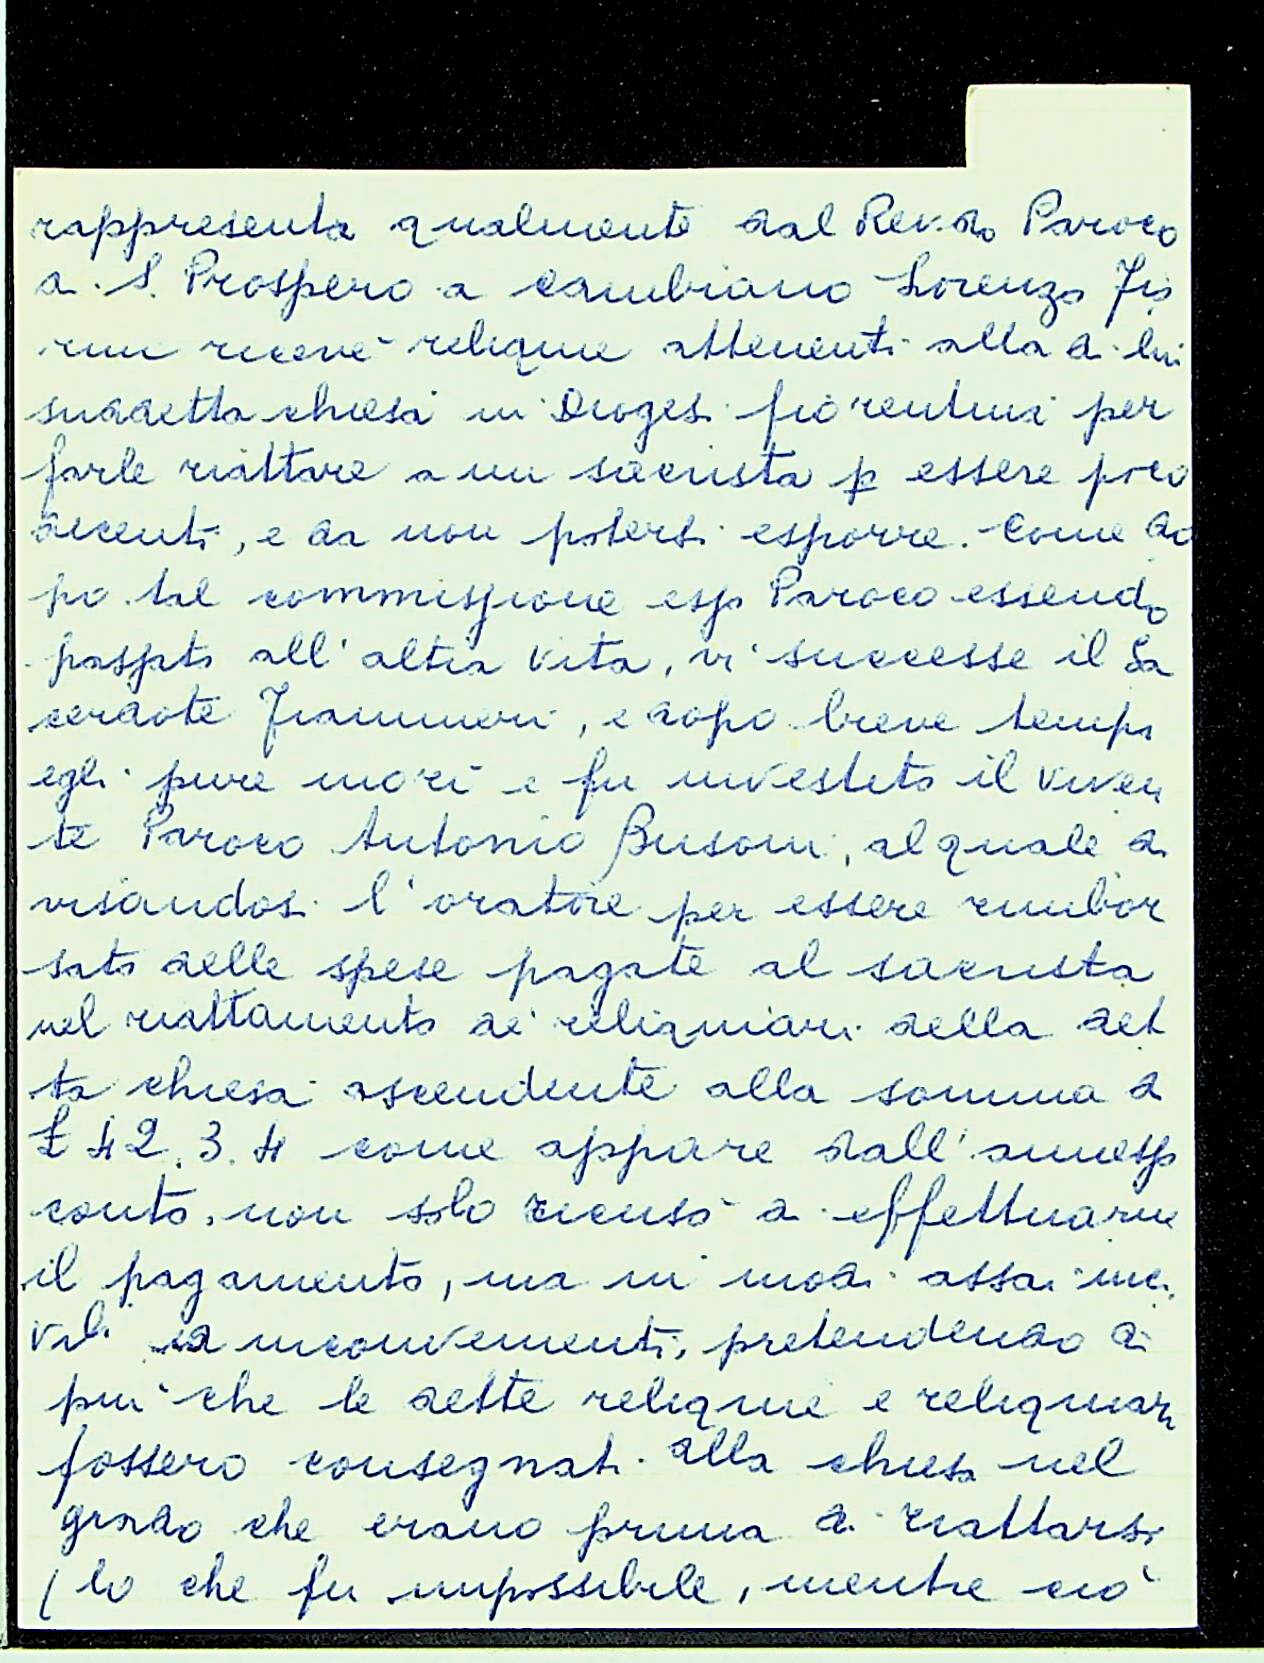 rappresenta qualmente dal Rev.do Paroco
di S. Prospero a Cambiano Lorenzo
ricevè reliquie attenenti alla di lui
suddetta chiesa in Diogesi fiorentina per
farle riattare a un sacrista p essere poco
decenti, e da non potersi esporre. Come do
po tal commissione esso Paroco essendo
passato all'altra vita, vi successe il Sa
cerdote, e dopo breve tempo
egli pure morì e fu investito il viven
te Paroco Antonio Busoni, al quale av
visandosi l'oratore per essere rimbor
sato delle spese pagate al sacrista
nel riattamento de' reliquiari della det
ta chiesa ascendente alla somma di
£ 42.3.4 come appare dall'annesso
conto, non solo ricusò di effettuarne
il pagamento, ma in modi assai inci
vili ed inconvenienti, pretendendo di
più che le dette reliquie e reliquiari
fossero consegnati alla chiesa nel
grado che erano prima di riattarsi
(lo che fu impossibile, mentre ciò